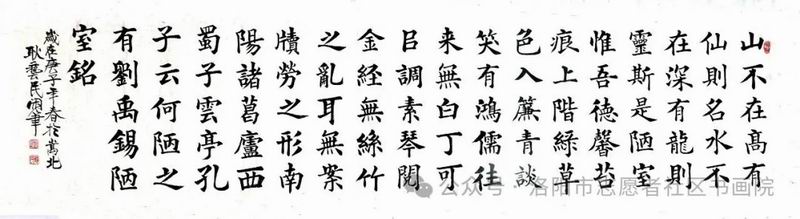 山不在高有
仙則名水不
在深有龍則
靈斯是陋室
惟吾德馨苔
痕上階綠草
色入簾青談
笑有鴻儒往
来無白丁可
㠯調素琴閱
金経無絲竹
之亂耳無案
牘勞之形南
陽諸葛廬西
蜀子雲亭孔
子云何陋之
有劉禹錫陋
室銘
歲在庚子年春於萬北
耿藝民筆
公众号 · 洛阳市志愿者社区书画院